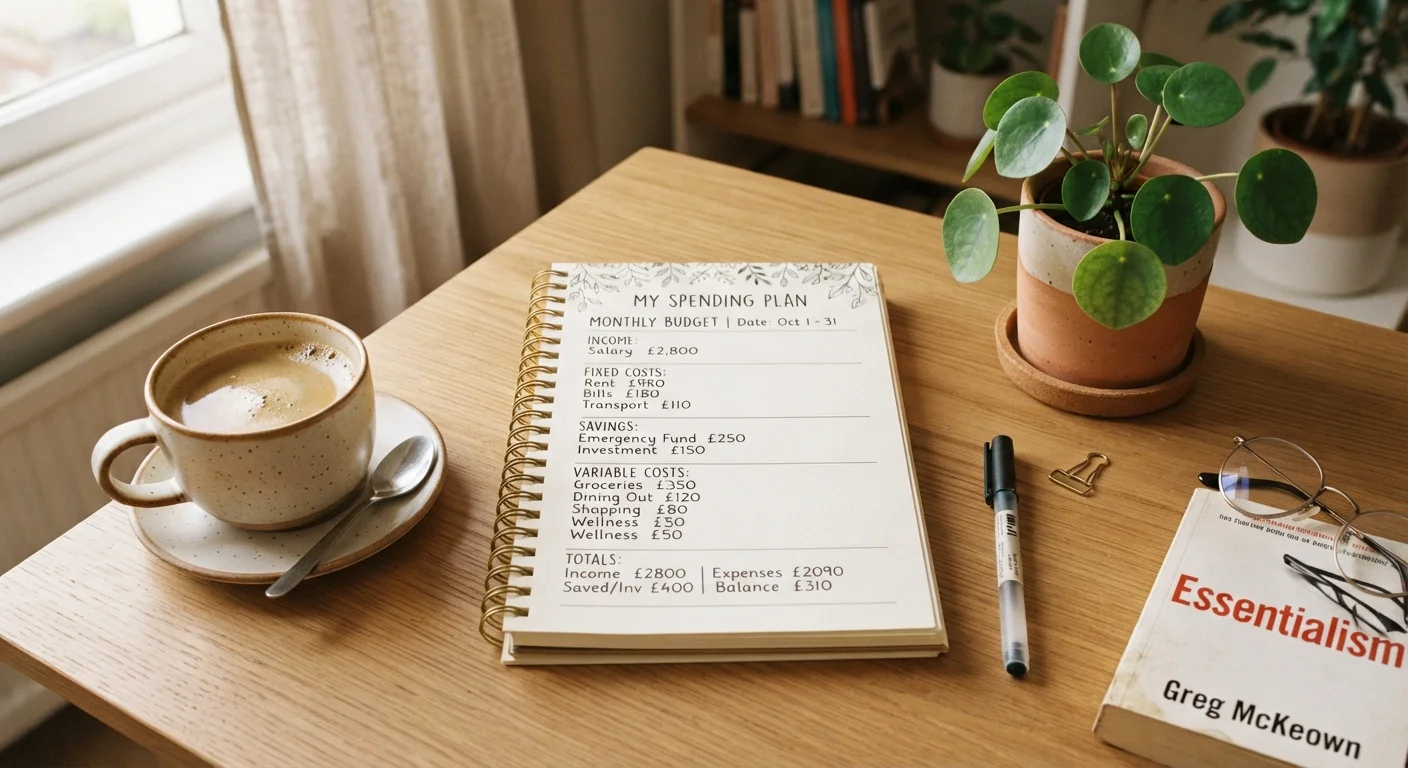 MY SPENDING PLAN
MONTHLY BUDGET | Date: Oct 1 - 31
INCOME:
Salary £2,800
FIXED COSTS:
Rent
Bills
Transport £110
SAVINGS:
Emergency Fund £250
Investment £150
VARIABLE COSTS:
Groceries £350
Dining Out £120
Shapping £80
Wellness £50
Wellness £50
TOTALS:
Income £2800 | Expenses £2090
Saved/Inv £400 | Balance £310
Essentialism
Greg McKeown